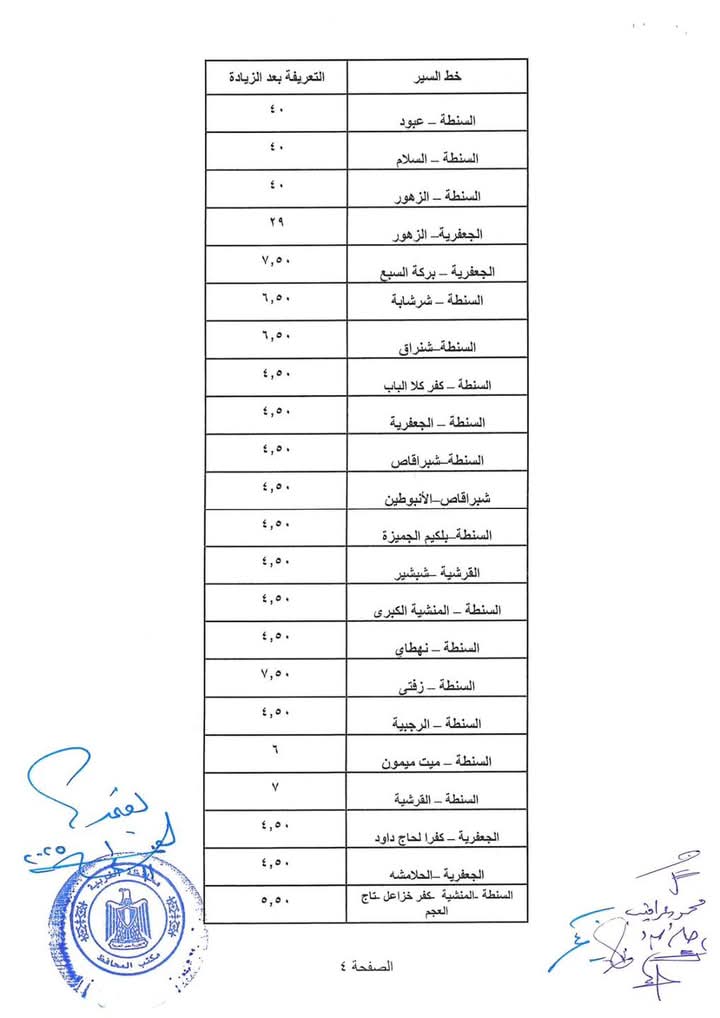 خط السير التعريفة بعد الزيادة
السنطة – عبود ٤٠
السنطة – السلام ٤٠
السنطة – الزهور ٤٠
الجعفرية– الزهور ٢٩
الجعفرية – بركة السبع ٧,٥٠
السنطة – شرشابة ٦,٥٠
السنطة–شنراق ٦,٥٠
السنطة – كفر كلا الباب ٤,٥٠
السنطة – الجعفرية ٤,٥٠
السنطة–شبراقاص ٤,٥٠
شبراقاص–الأنبوطين ٤,٥٠
السنطة–بلكيم الجميزة ٤,٥٠
القرشية –شبشير ٤,٥٠
السنطة – المنشية الكبرى ٤,٥٠
السنطة – نهطاي ٤,٥٠
السنطة – زفتى ٧,٥٠
السنطة – الرجبية ٤,٥٠
السنطة – ميت ميمون ٦
السنطة – القرشية ٧
الجعفرية – كفرا لحاج داود ٤,٥٠
الجعفرية –الحلامشه ٤,٥٠
السنطة -المنشية -كفر خزاعل -تاج
العجم ٥,٥٠
يعتمد
٢٠٢٥
محافظة الغربية
مكتب المحافظ
الصفحة ٤